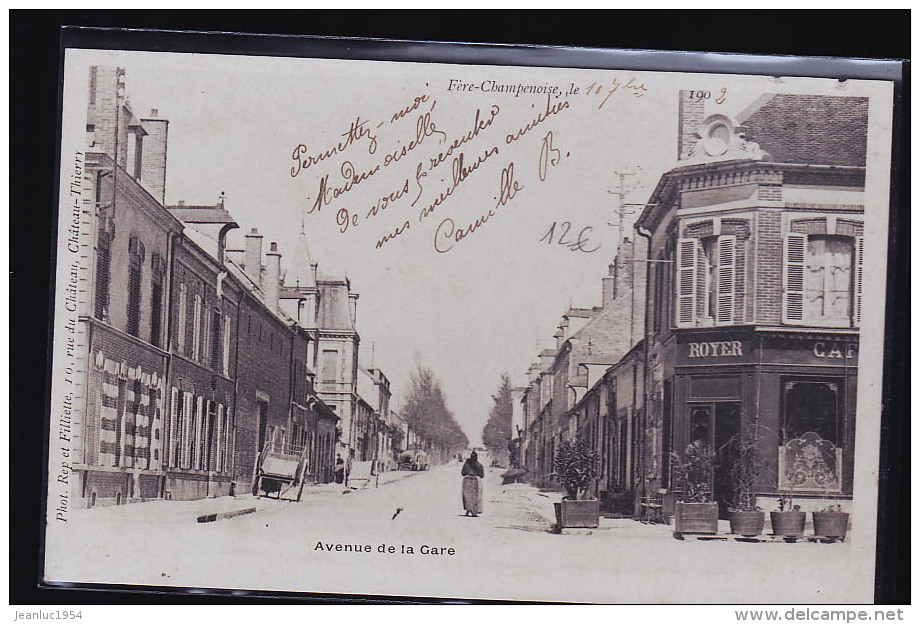 Fère-Champenoise, le 10 7bre 1902
Permettez-moi
Mademoiselle,
de vous présenter
mes meilleures amitiés
Camille B.
12€
ROYER
CAF
Phot. Rep et Filliette, 10, rue du Château, Château-Thierry
Avenue de la Gare
jeanluc1954
www.delcampe.net